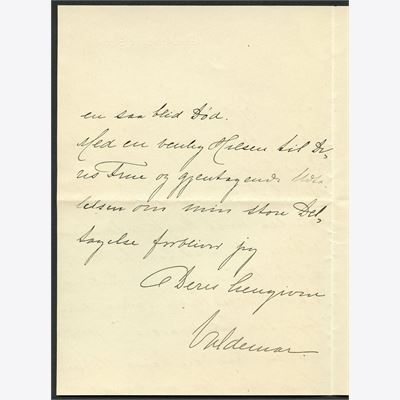 en saa blid Død.
Med en venlig Hilsen til De-
res Frue og gjentagende Udta-
lelsen om min store Del-
tagelse forbliver jeg
Deres hengivne
Valdemar.